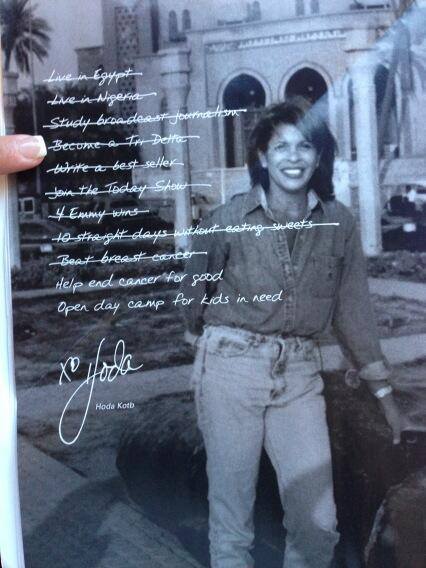 Live in Egypt
Live in Nigeria
Study broadcast journalism
Become a Tri Delta
Write a best seller
Join the Today Show
4 Emmy wins
10 straight days without eating sweets
Beat breast cancer
Help end cancer for good
Open day camp for kids in need
XO Hoda
Hoda Kotb